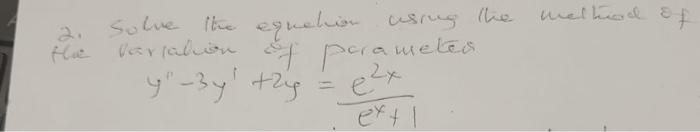 2. Solve the equation using the method of
the variation of parameter
y" - 3y' + 2y = e^{2x} / (e^x + 1)